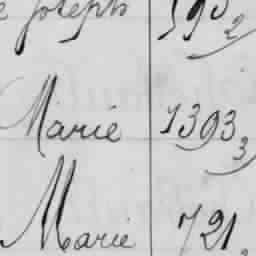 Joseph 590 2
Marie 1393 3
Marie 721